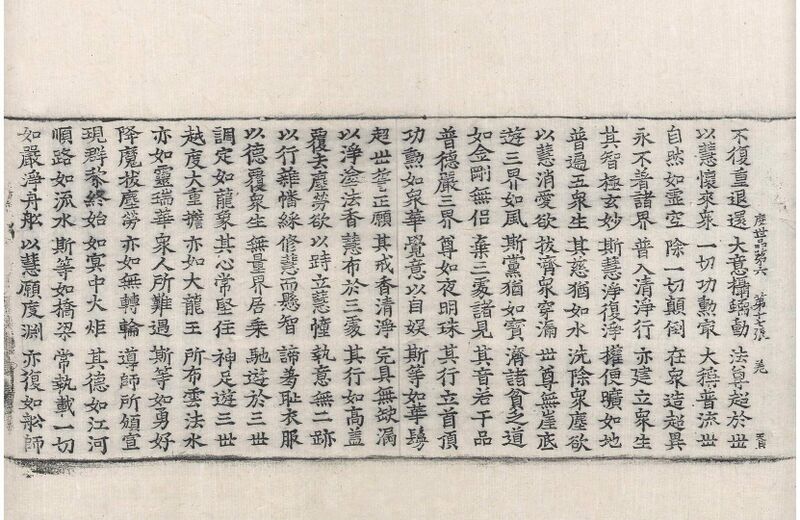 度世品第六 第十七張
不復重退還 大意攝蠕動 法尊超於世
以慧懷來衆 一切功勳冣 大稱普流世
自然如虛空 除一切顛倒 在衆造超異
永不著諸界 普入清淨行 亦建立衆生
其智極玄妙 斯慧淨復淨 權便曠如地
普遍五衆生 其慈猶如水 洗除衆塵欲
以慧消愛欲 拔濟衆穿漏 世尊無崖底
遊三界如風 斯黨猶如寶 濟諸貧乏道
如金剛無侶 棄三處諸見 其音若干品
普德嚴三界 尊如夜明珠 其行立首頂
功勳如衆華 覺意以自娛 斯等如華鬘
超世正願 其戒香清淨 完具無缺漏
以淨塗法香 慧布於三處 其行如高蓋
覆去塵勞欲 以時立慧幢 執意無二跡
以行雜憣綵 修慧而懸智 諦羞恥衣服
以德覆衆生 無量界居乘 馳遊於三世
調定如龍象 其心常堅住 神足遊三世
越度大重擔 亦如大龍王 所布雲法水
亦如靈瑞華 衆人所難遇 斯等如勇好
降魔拔塵勞 亦如無轉輪 導師所頒宣
現群黎終始 如冥中大炬 其德如江河
順路如流水 斯等如橋梁 常執載一切
如嚴淨舟舩 以慧願度淵 亦復如舩師